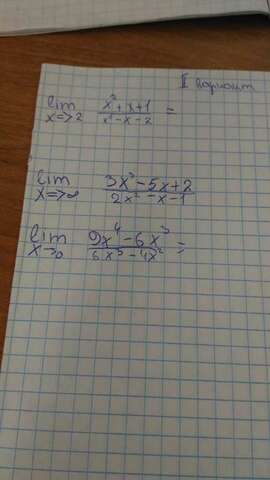 II вариант
lim x=>2 x²+x+1 / x²-x-2 =
lim x=>∞ 3x²-5x+2 / 2x²-x-1
lim x→0 9x⁴-6x³ / 6x³-4x² =